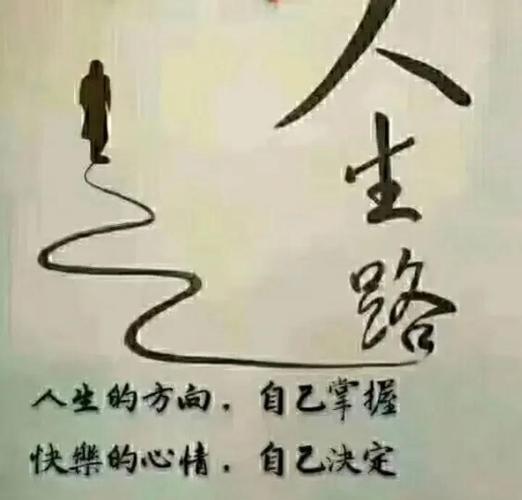 人生路
人生的方向，自己掌握
快樂的心情，自己決定